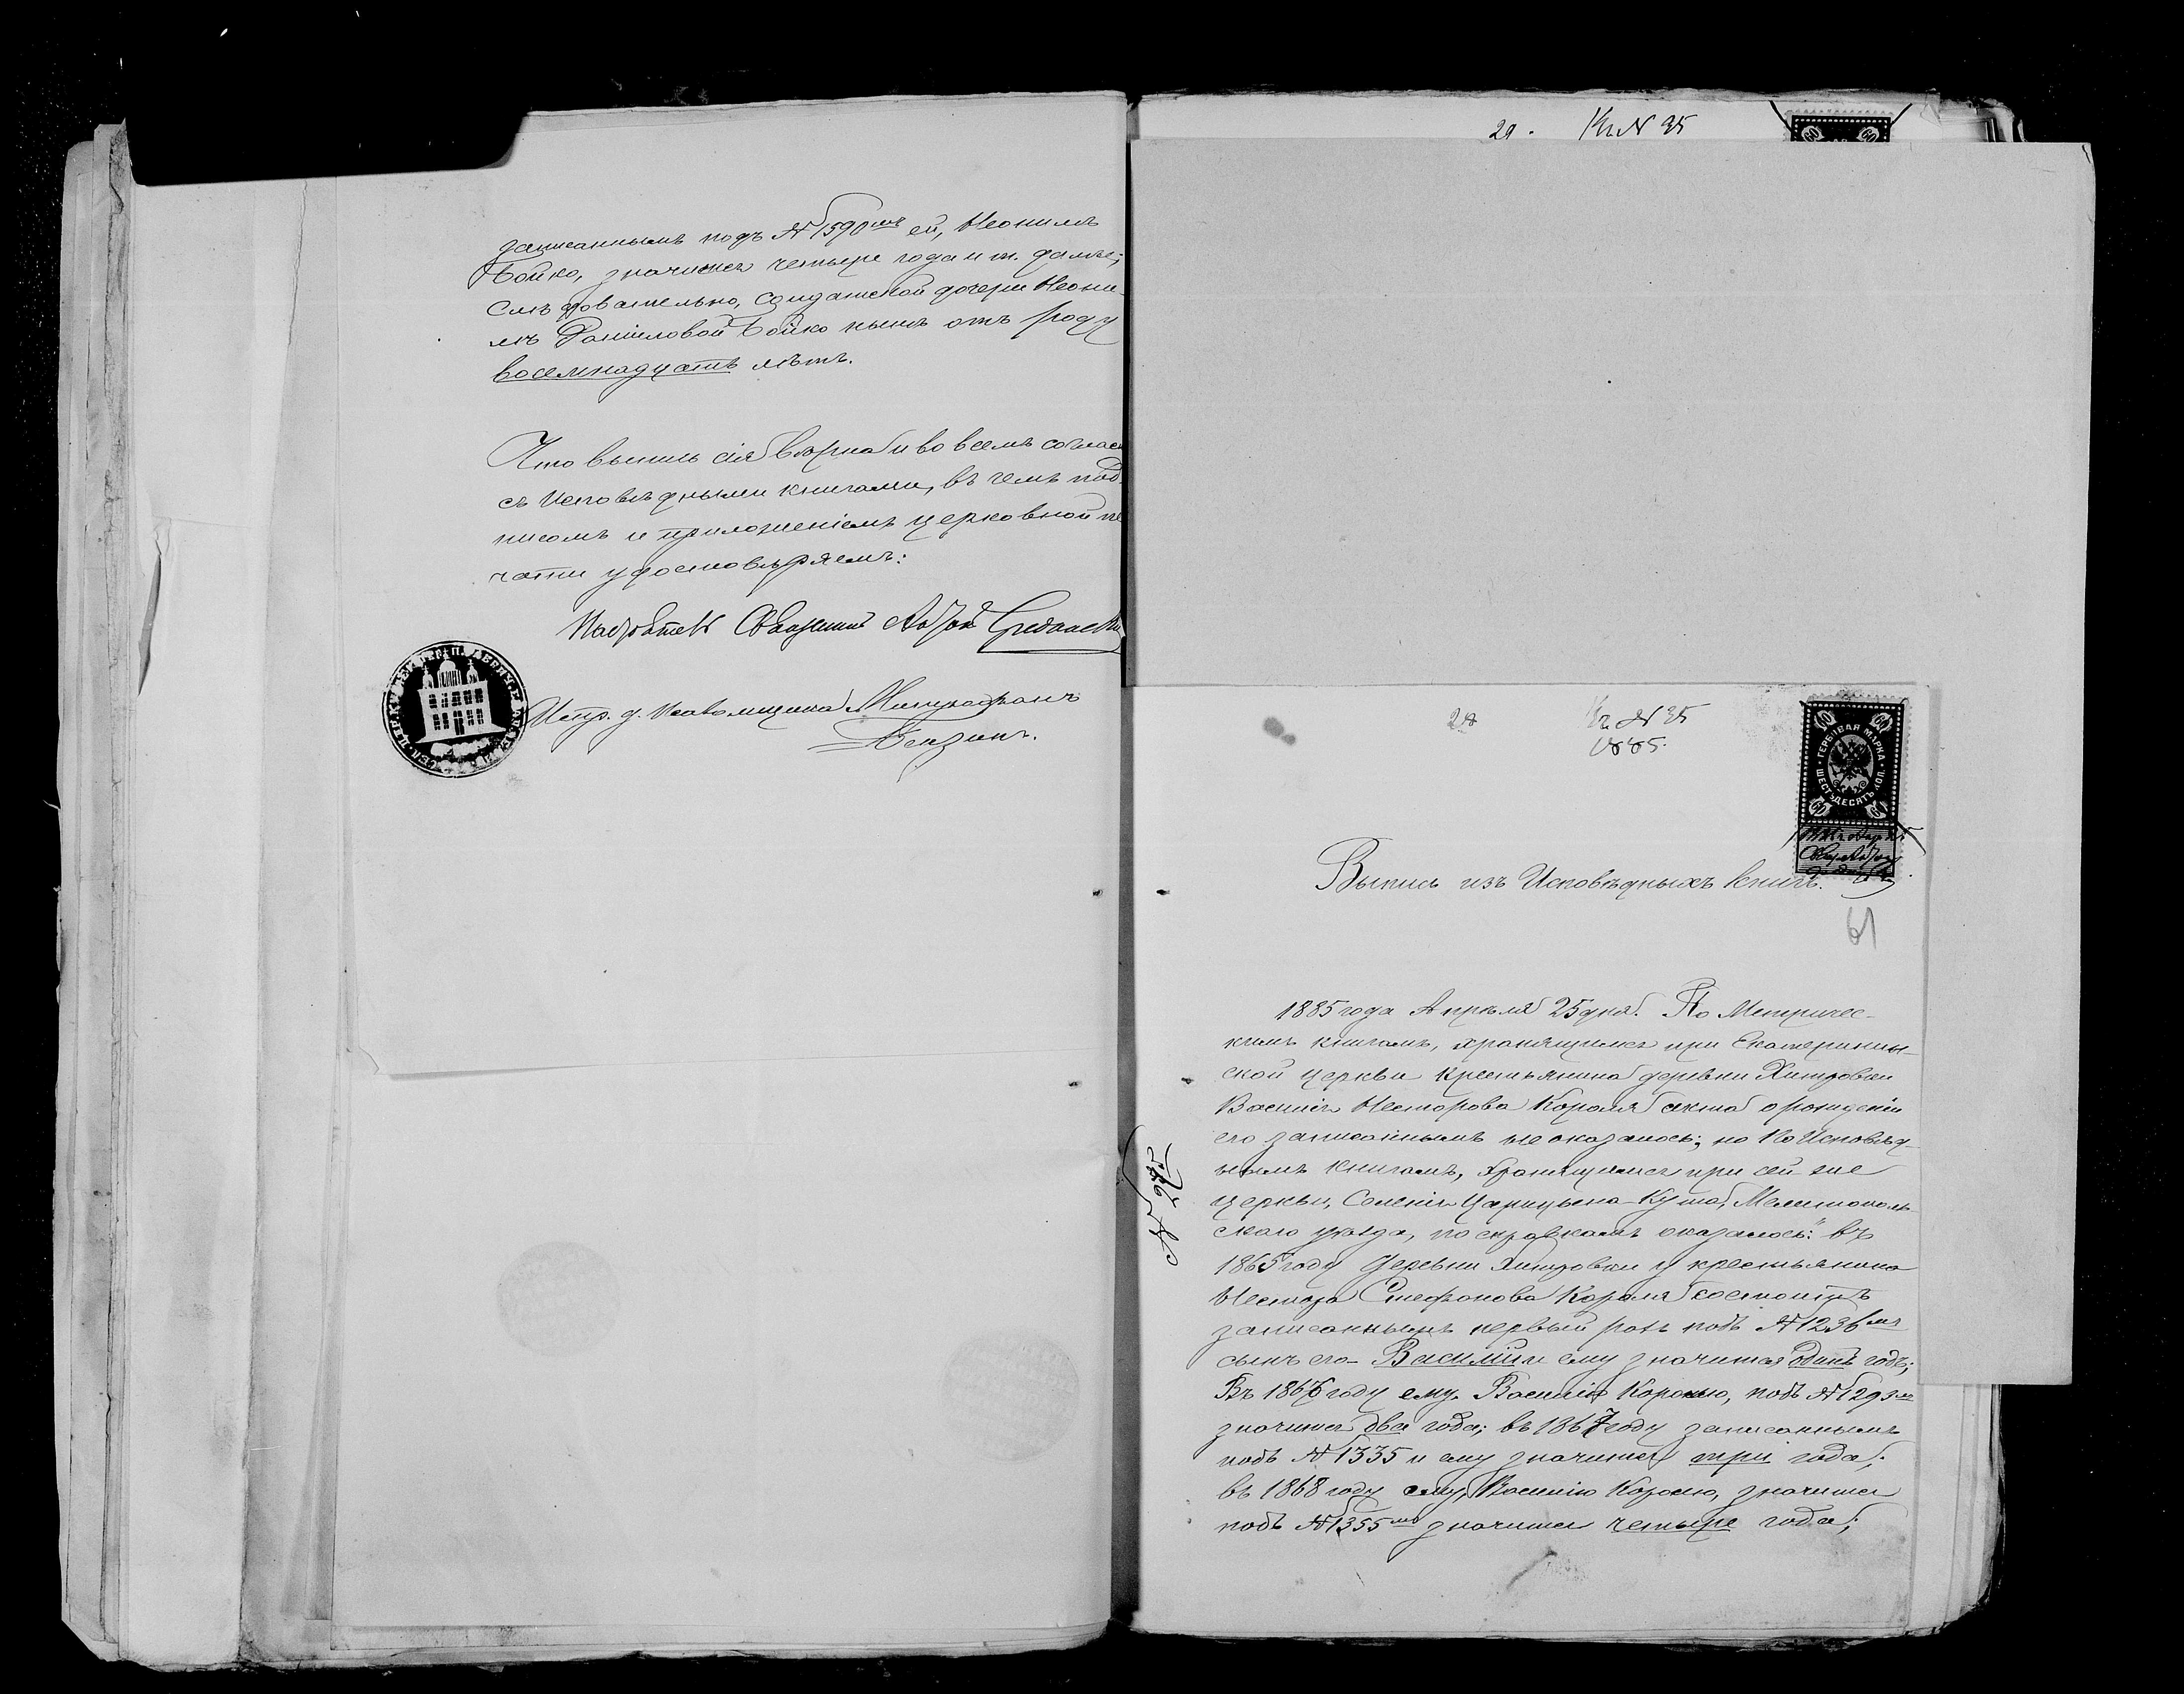 записаннымъ подъ № 1590мъ ей, Неонилѣ
Бойко, значится четыре года и т. далѣе;
Слѣдовательно, солдатской дочери Неони-
лѣ Даниловой Бойко нынѣ отъ роду
восемнадцать лѣтъ.
Что выпись сія вѣрна и во всемъ соглас
съ Исповѣдными книгами, въ чемъ под-
писомъ и приложеніемъ церковной пе
чати удостовѣряемъ:
Настоятель Священникъ
Испр. д. Псаломщика Митрофанъ
29. Къ № 35
29 Къ № 35
1885.
ГЕРБОВАЯ МАРКА
ШЕСТЬДЕСЯТЪ КОП.
60 60
60 60
Выпись изъ Исповѣдныхъ книгъ.
61
1885 года Апрѣля 25 дня. По Метричес-
кимъ книгамъ, хранящимся при Екатеринин-
ской церкви крестьянина деревни Хитровки
Василія Несторова Короля акта о рожденіи
его записаннымъ не оказалось; но по Исповѣд-
нымъ книгамъ, хранящимся при сей же
церкви, Селенія Царицына-Кута, Мелитополь-
скаго уѣзда, по справкамъ оказалось: "въ
1865 году деревни Хитровки у крестьянина
Нестора Стефанова Короля состоитъ
записаннымъ первый разъ подъ № 1236мъ
сынъ его- Василій и ему значится одинъ годъ;
Въ 1866 году ему, Василію Королю, подъ № 1293мъ
значится два года; въ 1867 году записаннымъ
подъ № 1335 и ему значится три года;
въ 1868 году ему, Василію Королю, значится
подъ № 1355мъ значится четыре года;